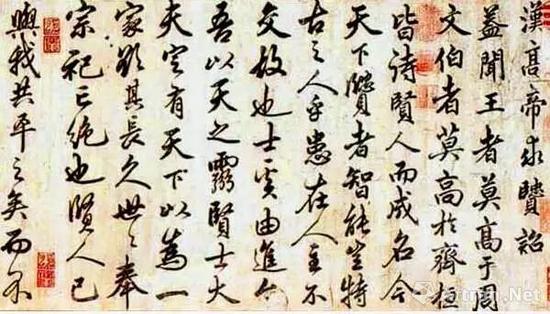 漢高帝求賢詔
蓋聞王者莫高于周
文伯者莫高於齊桓
皆待賢人而成名今
天下賢者智能豈特
古之人乎患在人主不
交故也士奚由進今
吾以天之靈賢士大
夫定有天下以為一
家欲其長久世〻奉
宗祀亡絕也賢人已
與我共平之矣而不
Artron.Net